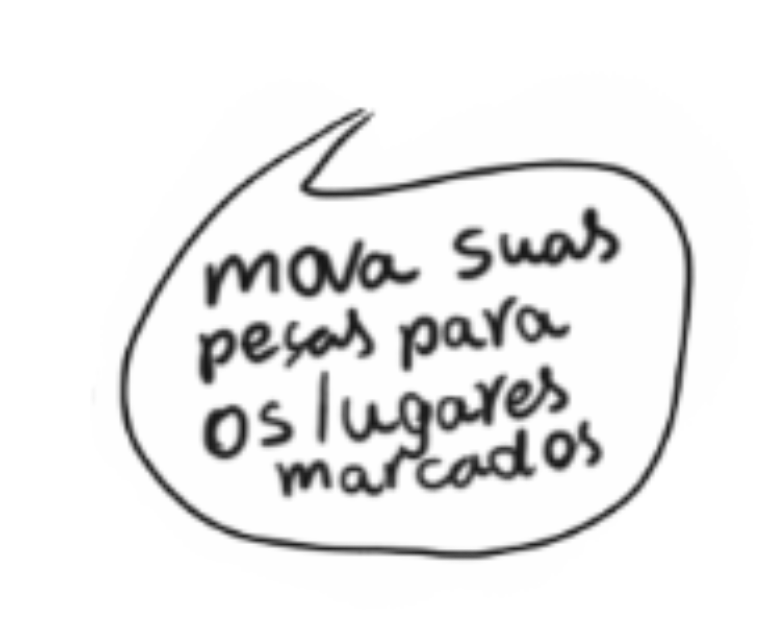 mova suas
peças para
os lugares
marcados